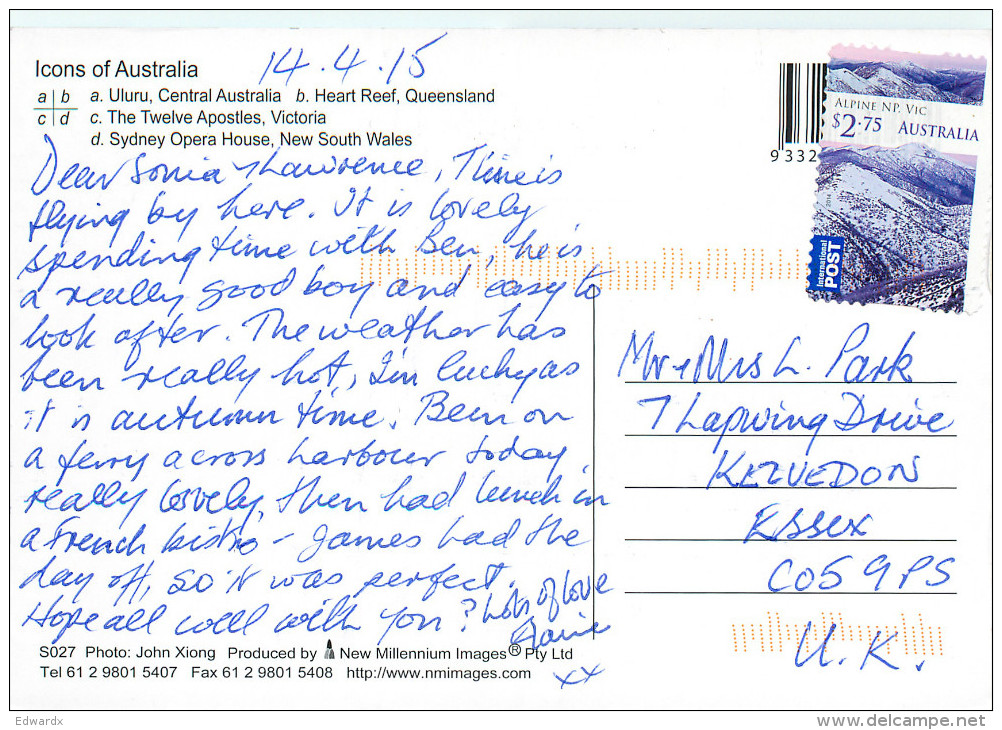 14.4.15
Icons of Australia
a b a. Uluru, Central Australia b. Heart Reef, Queensland
c d c. The Twelve Apostles, Victoria
d. Sydney Opera House, New South Wales
9332
ALPINE NP. VIC
$2.75 AUSTRALIA
2014
International
POST
Dear Sonia & Lawrence, Time is
flying by here. It is lovely
spending time with Ben, he is
a really good boy and easy to
look after. The weather has
been really hot, I'm lucky as
it is autumn time. Been on
a ferry across harbour today,
really lovely, then had lunch in
a French bistro - James had the
day off, so it was perfect.
Hope all well with you? Lots of love
xx
Mr & Mrs L. Park
7 Lapwing Drive
KELVEDON
Essex
CO5 9PS
U.K.
S027 Photo: John Xiong Produced by New Millennium Images® Pty Ltd
Tel 61 2 9801 5407 Fax 61 2 9801 5408 http://www.nmimages.com
Edwardx
delcampe.net